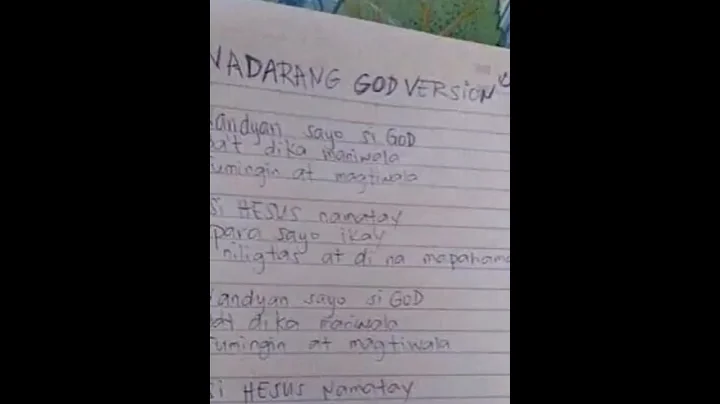 NADARANG GOD VERSION
andyan sayo si GOD
ba't dika maniwala
umingin at magtiwala
Si HESUS namatay
para sayo ikay
niligtas at di na mapaham
andyan sayo si GOD
bat dika maniwala
Tumingin at magtiwala
Si HESUS Namatay